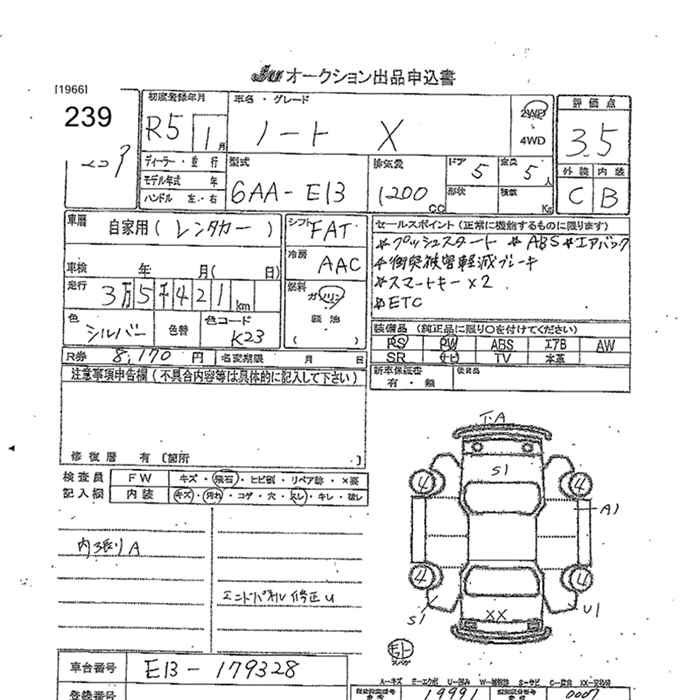 JU オークション出品申込書
[1966]
239
初度登録年月
R5 1月
車名・グレード
ノート X
2WD
4WD
評価点
3.5
外装 内装
C B
ディーラー・並行
モデル年式 年
ハンドル 左・右
型式
6AA-E13
排気量
1200 CC
ドア 5
定員 5人
形状
積載 Kg
車歴
自家用 ( レンタカー )
車検 年 月( 日)
走行 3万5千421km
色 シルバー
色替
色コード K23
シフト FAT
冷房 AAC
燃料 ガソリン
軽油
( )
セールスポイント (正常に機能するものに限ります)
*プッシュスタート *ABS*エアバック
*衝突被害軽減ブレーキ
*スマートキー×2
*ETC
装備品 (純正品に限り○を付けてください)
PS PW ABS エアB AW
SR ナビ TV 本革
新車保証書
有・無
後日品
R券 8,170円
名変期限 月 日
注意事項申告欄 (不具合内容等は具体的に記入して下さい)
修復歴 有 〔箇所 〕
検査員
記入欄
FW キズ・飛石・ヒビ割・リペア跡・×要
内装 キズ・汚れ・コゲ・穴・スレ・キレ・破レ
内張りA
エンドパネル修正U
T.A
S1
4
4
A1
4
4
S1
XX
U1
A-キズ E-エクボ U-凹み W-補修跡 S-サビ C-腐食 XX-交換済
車台番号 E13-179328
登録番号
19991
0007